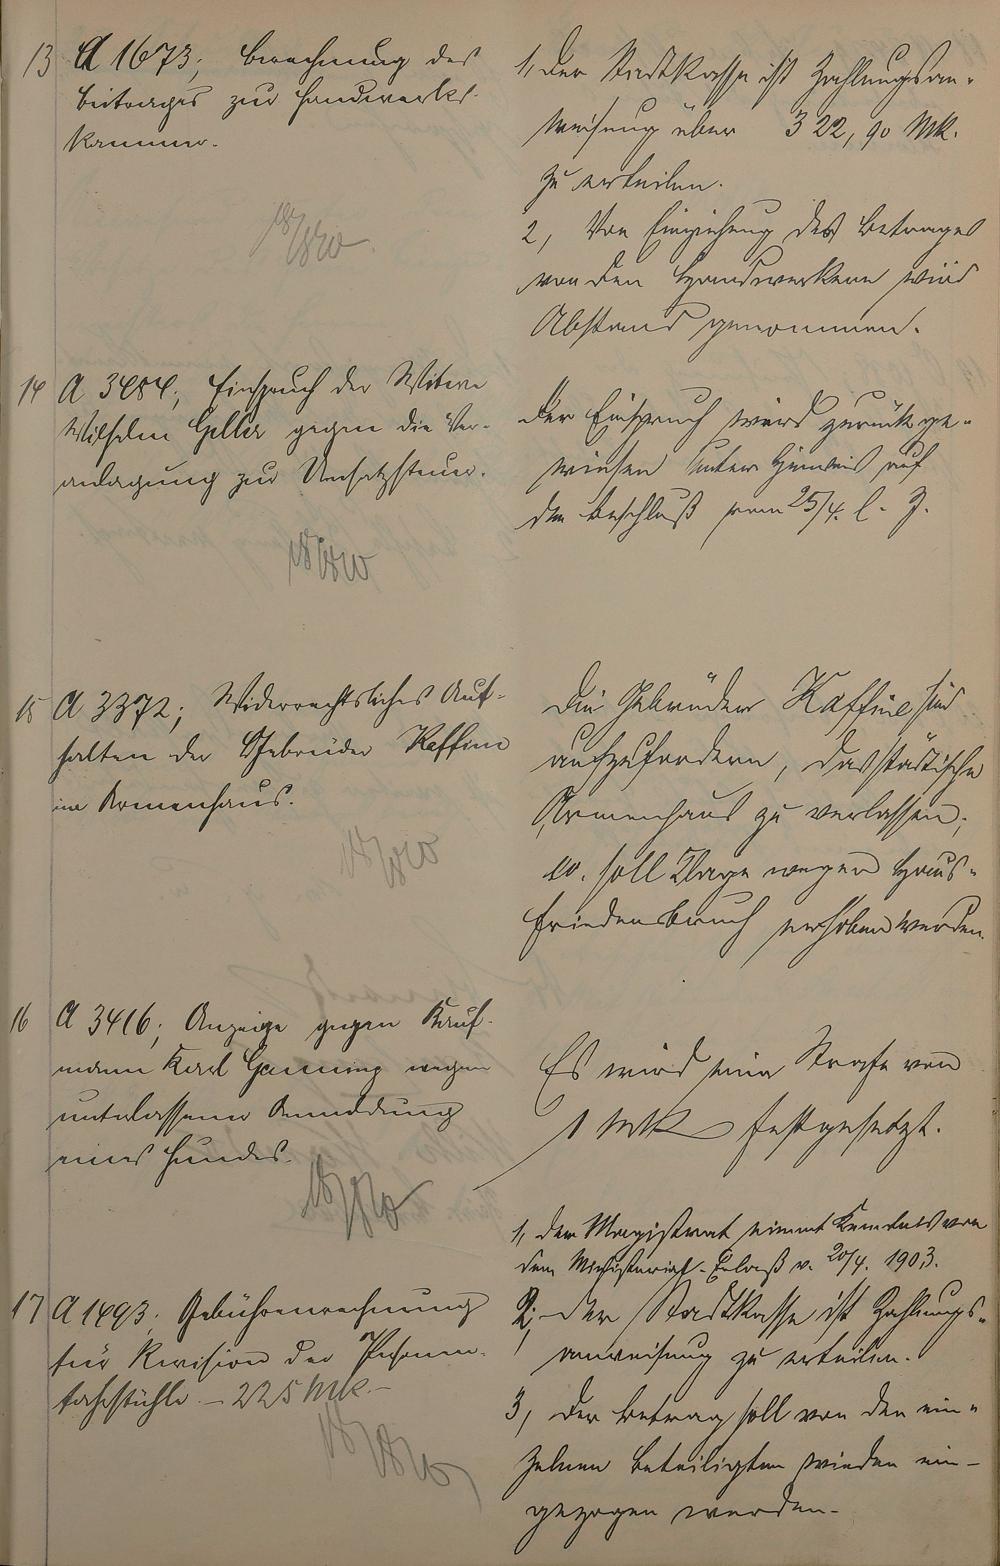 13 A 1673; Berechnung des
Beitrages zur Handwerks-
kammer.
1, Der Stadtkasse ist Zahlungsan-
weisung über 322,90 Mk.
zu erteilen.
2, Von Einziehung des Betrages
von den Handwerkern wird
Abstand genommen.
14 A 3484; Einspruch der Witwe
Wilhelm Geller gegen die Ver-
anlagung zur Umsatzsteuer.
Der Einspruch wird zurückge-
wiesen unter Hinweis auf
den Beschluß vom 25/4. l. J.
15 A 3372; Widerrechtliches Auf-
halten der Gebrüder Kaffine
im Armenhaus.
Die Gebrüder Kaffine sind
aufzufordern, das städtische
Armenhaus zu verlassen,
soll Klage wegen Haus-
friedensbruch erhoben werden.
16 A 3416; Anzeige gegen Kauf-
mann Karl wegen
unterlassener Anmeldung
eines Hundes.
Es wird eine Strafe von
1 Mk festgesetzt.
17 A 1493; Gebührenrechnung
für Revision der Personen-
fahrstühle. – 225 Mk. –
1, Der Magistrat nimmt Kenntnis von
dem Ministerial-Erlaß v. 20/4. 1903.
2, Der Stadtkasse ist Zahlungs-
anweisung zu erteilen.
3, Der Betrag soll von den ein-
zelnen Beteiligten wieder ein-
gezogen werden.